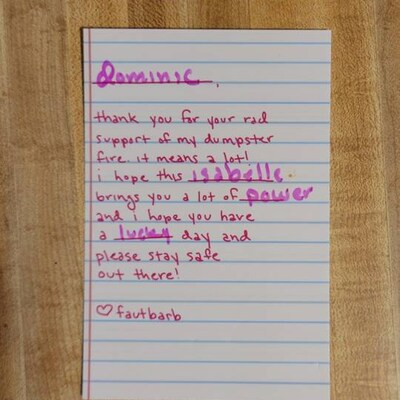 dominic,
thank you for your rad
support of my dumpster
fire. it means a lot!
i hope this isabelle
brings you a lot of power
and i hope you have
a lucky day and
please stay safe
out there!
♡ fautbarb